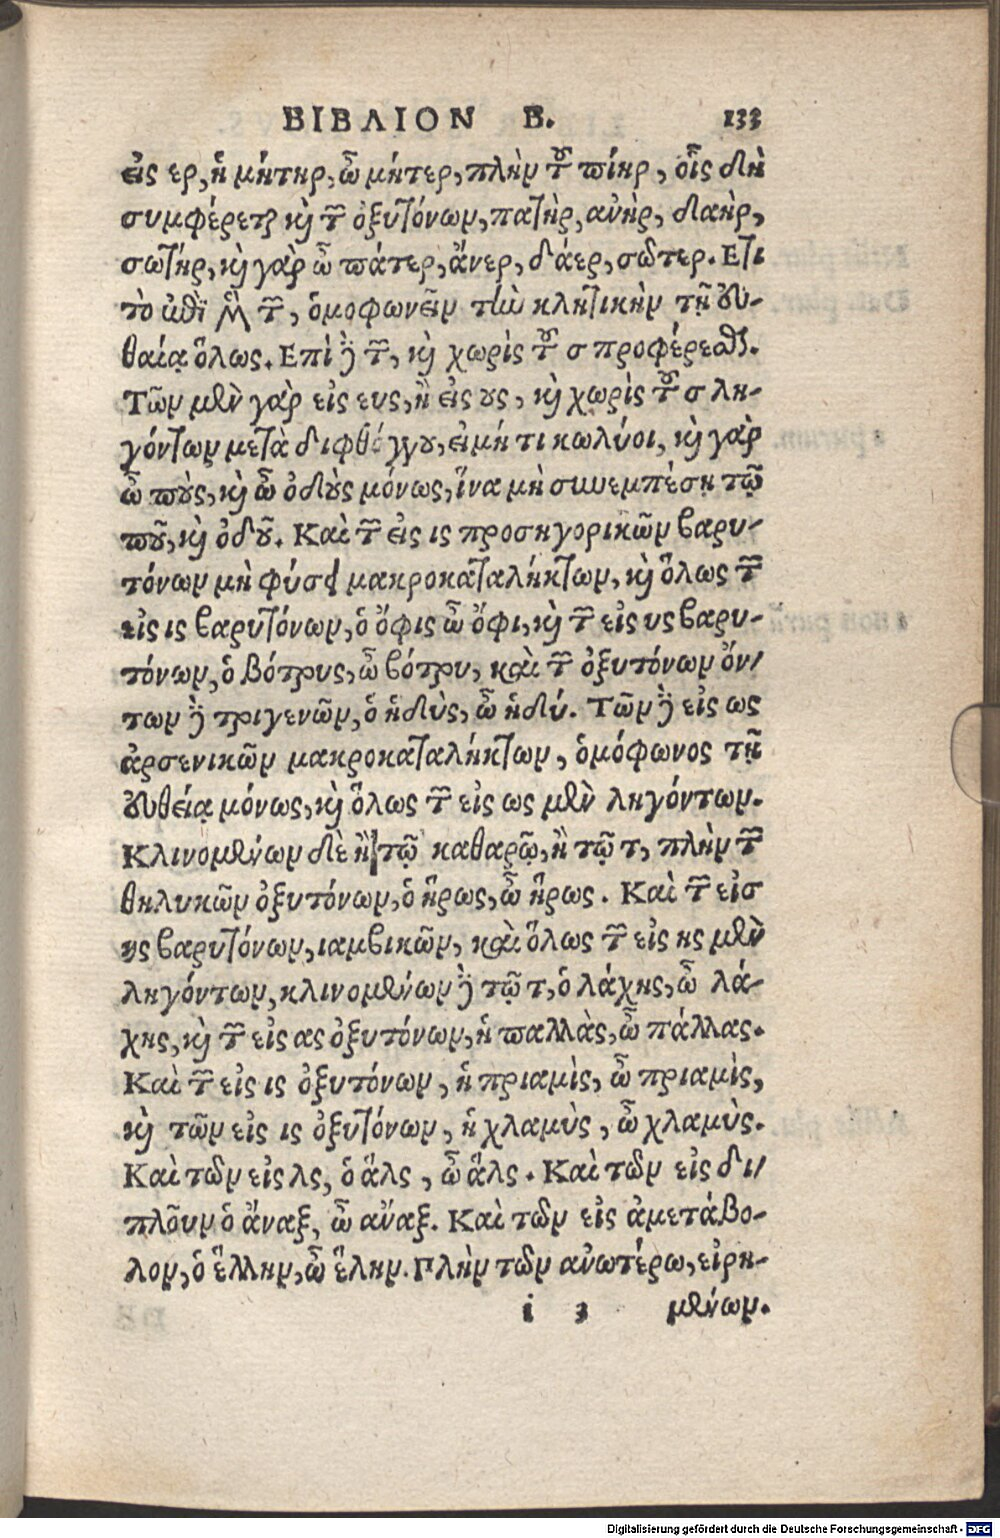 ΒΙΒΛΙΟΝ Β. 133
εἰς ερ, ἡ μήτηρ, ὦ μήτερ, πλὴν τοῦ πίηρ, οἷς δὴ
συμφέρεται καὶ τῶν ὀξυτόνων, πατὴρ, ανὴρ, δαὴρ,
σωτήρ, καὶ γὰρ ὦ πάτερ, ἄνερ, δάερ, σῶτερ. Ετι
τὸ τῶν, ὁμοφωνεῖν τὴν κλητικὴν τῇ εὐ-
θείᾳ ὅλως. Επὶ δὲ τῶν, καὶ χωρὶς τοῦ σ προφέρεσθαι.
Τῶν μὲν γὰρ εἰς ευς, ἢ εἰς ους, καὶ χωρὶς τοῦ σ λη-
γόντων μετὰ διφθόγγου, εἰ μή τι κωλύοι, καὶ γὰρ
ὦ ποὺς, καὶ ὦ ὀδοὺς μόνως, ἵνα μὴ συνεμπέσῃ τῷ
ποῦ, καὶ ὀδοῦ. Καὶ τῶν εἰς ις προσηγορικῶν βαρυ-
τόνων μὴ φύσει μακροκαταλήκτων, καὶ ὅλως τῶν
εἰς ις βαρυτόνων, ὁ ὄφις ὦ ὄφι, καὶ τῶν εἰς υς βαρυ-
τόνων, ὁ βότρυς, ὦ βότρυ, καὶ τῶν ὀξυτόνων ὄν/
των δὲ τριγενῶν, ὁ ἡδὺς, ὦ ἡδύ. Τῶν δὲ εἰς ως
ἀρσενικῶν μακροκαταλήκτων, ὁμόφωνος τῇ
εὐθείᾳ μόνως, καὶ ὅλως τῶν εἰς ως μὲν ληγόντων.
Κλινομένων δὲ ἢ τῷ καθαρῷ, ἢ τῷ τ, πλὴν τῶν
θηλυκῶν ὀξυτόνων, ὁ ἥρως, ὦ ἥρως. Καὶ τῶν εἰσ
ης βαρυτόνων, ιαμβικῶν, καὶ ὅλως τῶν εἰς ης μὲν
ληγόντων, κλινομένων δὲ τῷ τ, ὁ λάχης, ὦ λά-
χης, καὶ τῶν εἰς ας ὀξυτόνων, ἡ παλλὰς, ὦ πάλλας.
Καὶ τῶν εἰς ις ὀξυτόνων, ἡ πριαμὶς, ὦ πριαμὶς,
καὶ τῶν εἰς ις ὀξυτόνων, ἡ χλαμὺς, ὦ χλαμὺς.
Καὶ τῶν εἰς λς, ὁ ἅλς, ὦ ἅλς. Καὶ τῶν εἰς δι/
πλοῦν ὁ ἄναξ, ὦ αὔαξ. Καὶ τῶν εἰς ἀμετάβο-
λον, ὁ ἕλλην, ὦ ἕλην. Πλὴν τῶν ανωτέρω, εἰρη-
i 3 μένων.
Digitalisierung gefördert durch die Deutsche Forschungsgemeinschaft - DFG